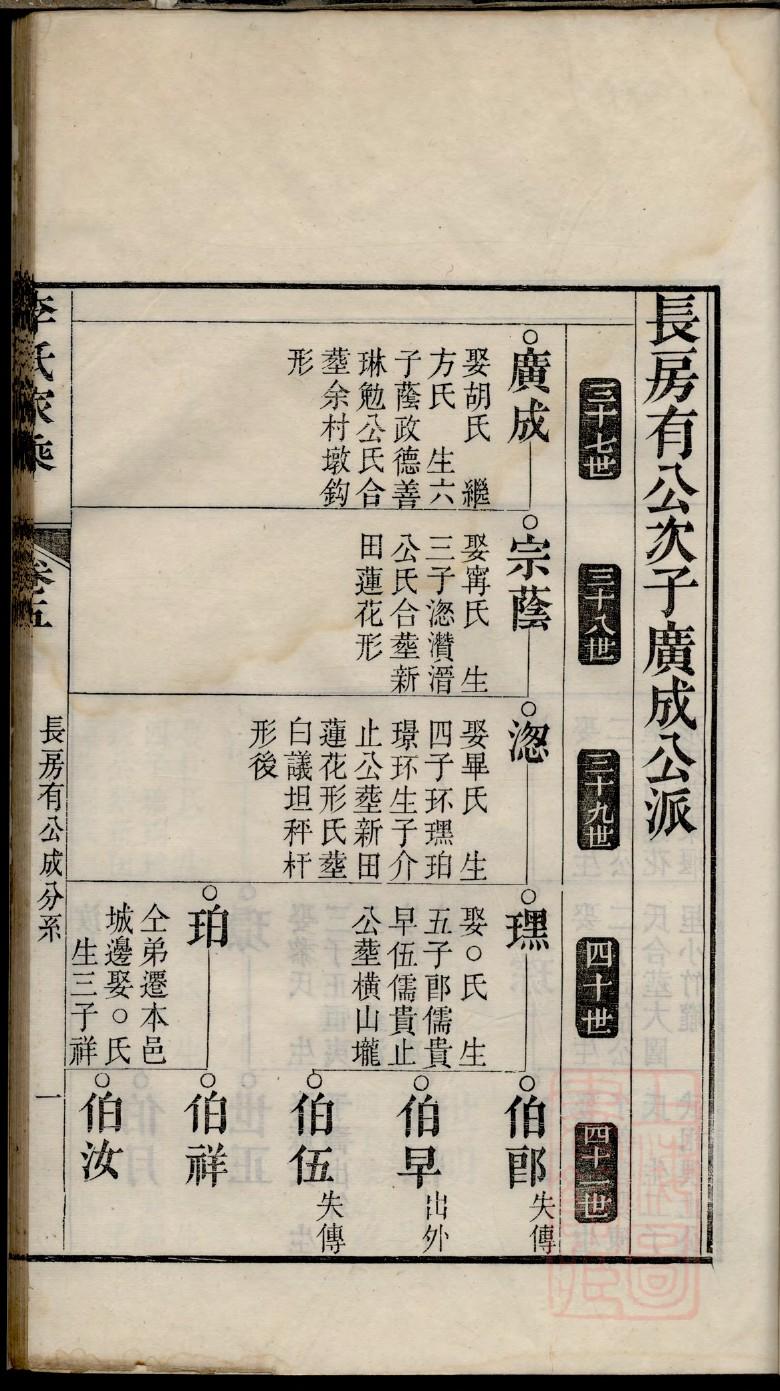 長房有公次子廣成公派
三十七世
三十八世
三十九世
四十世
四十一世
廣成
娶胡氏　繼
方氏　生六
子蔭政德善
琳勉公氏合
塟余村墩鈎
形
宗蔭
娶寗氏　生
三子淴濽湣
公氏合塟新
田蓮花形
淴
娶畢氏　生
四子环瑆珀
璟环生子介
止公塟新田
蓮花形氏塟
白議坦秤杆
形後
娶○氏　生
五子郎儒貴
早伍儒貴止
公塟橫山壠
珀
仝弟遷本邑
城邊娶○氏
生三子祥
伯郎
失傳
伯早
出外
伯伍
失傳
伯祥
伯汝
李氏家乘
卷五
長房有公成分系
一